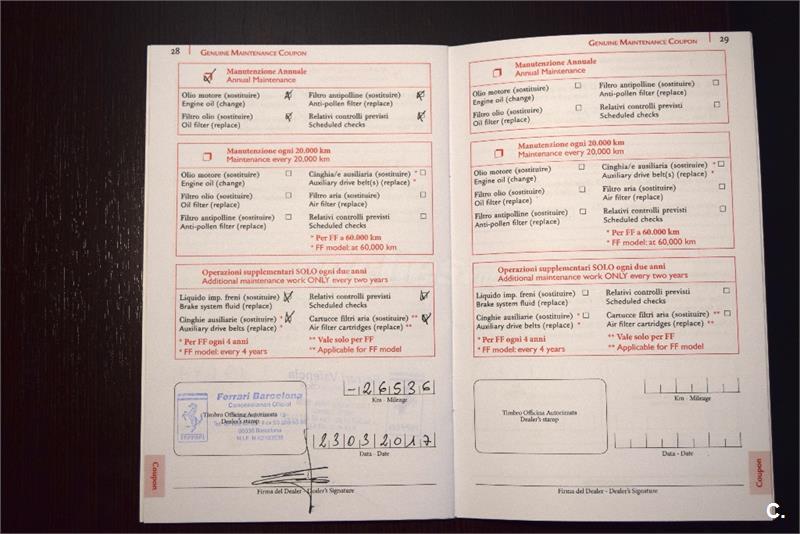 28 GENUINE MAINTENANCE COUPON
Manutenzione Annuale
Annual Maintenance
Olio motore (sostituire)
Engine oil (change)
Filtro antipolline (sostituire)
Anti-pollen filter (replace)
Filtro olio (sostituire)
Oil filter (replace)
Relativi controlli previsti
Scheduled checks
Manutenzione ogni 20.000 km
Maintenance every 20,000 km
Olio motore (sostituire)
Engine oil (change)
Cinghia/e ausiliaria (sostituire) *
Auxiliary drive belt(s) (replace) *
Filtro olio (sostituire)
Oil filter (replace)
Filtro aria (sostituire)
Air filter (replace)
Filtro antipolline (sostituire)
Anti-pollen filter (replace)
Relativi controlli previsti
Scheduled checks
* Per FF a 60.000 km
* FF model: at 60,000 km
Operazioni supplementari SOLO ogni due anni
Additional maintenance work ONLY every two years
Liquido imp. freni (sostituire)
Brake system fluid (replace)
Relativi controlli previsti
Scheduled checks
Cinghie ausiliarie (sostituire) *
Auxiliary drive belts (replace) *
Cartucce filtri aria (sostituire) **
Air filter cartridges (replace) **
* Per FF ogni 4 anni
* FF model: every 4 years
** Vale solo per FF
** Applicable for FF model
Ferrari Barcelona
Concesionario Oficial
Timbro Officina Autorizzata
Dealer's stamp
Barcelona
FERRARI
-26536
Km - Mileage
23032017
Data - Date
Firma del Dealer - Dealer's Signature
Coupon
GENUINE MAINTENANCE COUPON 29
Manutenzione Annuale
Annual Maintenance
Olio motore (sostituire)
Engine oil (change)
Filtro antipolline (sostituire)
Anti-pollen filter (replace)
Filtro olio (sostituire)
Oil filter (replace)
Relativi controlli previsti
Scheduled checks
Manutenzione ogni 20.000 km
Maintenance every 20,000 km
Olio motore (sostituire)
Engine oil (change)
Cinghia/e ausiliaria (sostituire) *
Auxiliary drive belt(s) (replace) *
Filtro olio (sostituire)
Oil filter (replace)
Filtro aria (sostituire)
Air filter (replace)
Filtro antipolline (sostituire)
Anti-pollen filter (replace)
Relativi controlli previsti
Scheduled checks
* Per FF a 60.000 km
* FF model: at 60,000 km
Operazioni supplementari SOLO ogni due anni
Additional maintenance work ONLY every two years
Liquido imp. freni (sostituire)
Brake system fluid (replace)
Relativi controlli previsti
Scheduled checks
Cinghie ausiliarie (sostituire) *
Auxiliary drive belts (replace) *
Cartucce filtri aria (sostituire) **
Air filter cartridges (replace) **
* Per FF ogni 4 anni
* FF model: every 4 years
** Vale solo per FF
** Applicable for FF model
Timbro Officina Autorizzata
Dealer's stamp
Km - Mileage
Data - Date
Firma del Dealer - Dealer's Signature
Coupon
C.